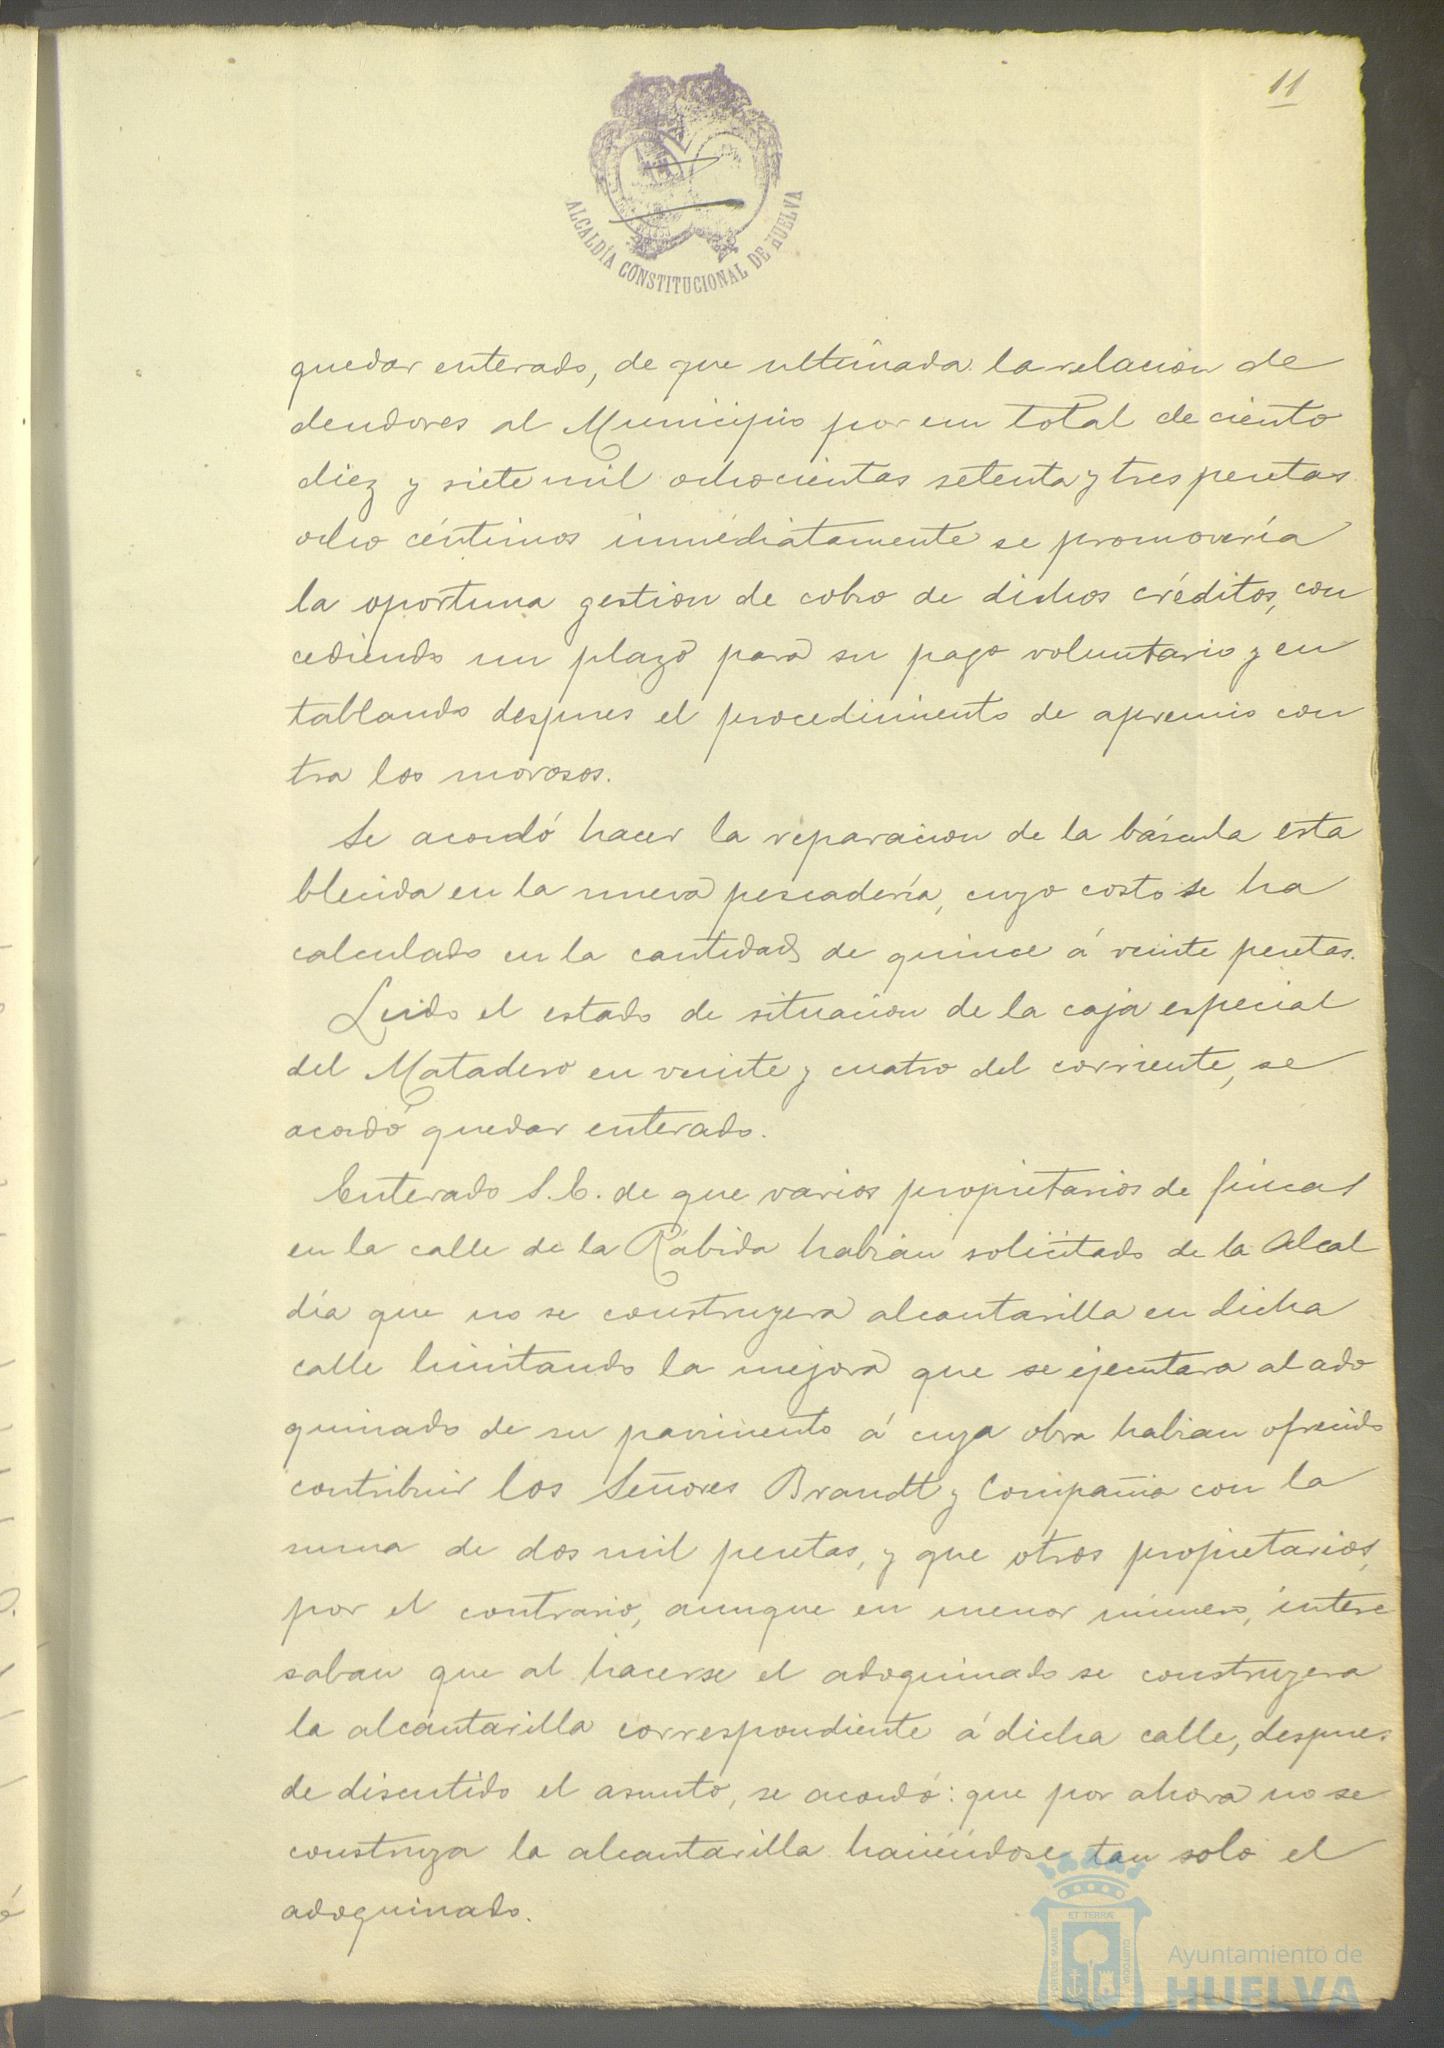 11
ALCALDÍA CONSTITUCIONAL DE HUELVA
quedar enterado, de que ultimada la relacion de
deudores al Municipio por un total de ciento
diez y siete mil ochocientas setenta y tres pesetas
ocho céntimos inmediatamente se promovería
la oportuna gestion de cobro de dichos créditos, con
cediendo un plazo para su pago voluntario y en
tablando despues el procedimiento de apremio con
tra los morosos.
Se acordó hacer la reparacion de la báscula esta
blecida en la nueva pescadería, cuyo costo se ha
calculado en la cantidad de quince á veinte pesetas.
Leido el estado de situacion de la caja especial
del Matadero en veinte y cuatro del corriente, se
acordó quedar enterado.
Enterado S. E. de que varios propietarios de fincas
en la calle de la Rábida habian solicitado de la Alcal
día que no se construyera alcantarilla en dicha
calle limitando la mejora que se ejecutara al ado
quinado de su pavimento á cuya obra habian ofrecido
contribuir los Señores Brandt y Compañia con la
suma de dos mil pesetas, y que otros propietarios,
por el contrario, aunque en menor número, intere
saban que al hacerse el adoquinado se construyera
la alcantarilla correspondiente á dicha calle, despues
de discutido el asunto, se acordó: que por ahora no se
construya la alcantarilla haciéndose tan solo el
adoquinado.
ET TERRÆ
PORTUS MARIS
CUSTODIA
Ayuntamiento de
HUELVA